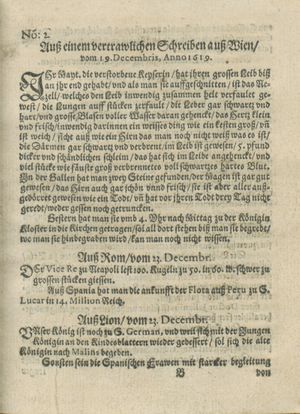 No: 2.
Auß einem vertrawlichen Schreiben auß Wien/
vom 19. Decembris, Anno 1619.
IHr Mayt. die verstorbene Keyserin / hat ihren grossen Leib biß
an jhr end gehabt / und als man sie auffgeschnitten / ist das Ne-
zell / welches den Leib inwendig zusammen helt verfaulet ge-
west / die Lungen auff stücken zerfault / die Leber gar schwartz und
hart / und grosse Blasen voller Wasser daran gehenckt / das Hertz klein
und frisch / inwendig darinnen ein weisses ding wie ein kesten groß / ist
weich / sicht auß wie ein Hirn das man noch nicht weiß was es ist /
die Därmen gar schwartz und verdent / im Leib ist gewesen / 5. pfund
dicker und schändlichen schleim / das hat sich im Leibe angehenckt / und
viel stücke wie fäust groß verdorbenes vollkommen schwartzes hartes Blut.
In der Gallen hat man zwey Steine gefunden / der Magen ist gar gut
gewesen / das Hirn auch gar schön unnd frisch / sie ist aber aller auß-
gedörret gewesen wie ein Todt / und hat vor ihrem Todt drey Tag nicht
geredt / weder gessen noch getruncken.
Gestern hat man sie umb 4. Uhr nach Mittag zu der Königin
Kloster in die Kirchen getragen / sol all dort stehen biß man sie begrebt /
wo man sie hinbegraben wird / kan man noch nicht wissen.
Auß Rom / vom 23. Decembr.
DEr Vice Re zu Neapoli lest 100. Kugeln zu 50. in 60. lb. schwer zu
grossen stücken giessen.
Auß Spania hat man die ankunfft der Flota auß Peru zu S.
Lucar in 14. Million Reich.
Auß Lion / vom 23. Decembr.
UNser König ist noch zu S. German, und weil sichs mit der Jungen
Königin an den Kindesblattern wieder gebessert / sol sich die alte
Königin nach Malins begeben.
Sonsten sein die Spanischen Frawen mit starcker begleitung
B
von